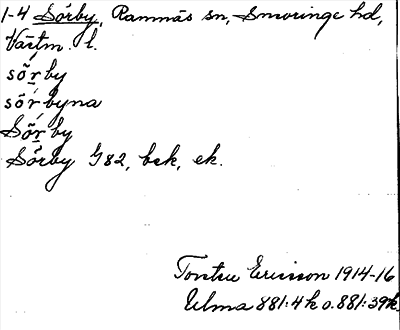 1-4 Sörby, Ramnäs sn, Snevringe hd,
Västm. l.
sö̀r̤by
sö̀r̤byna
Sö̀r̤by
Sörby G82, bek, ek.
Torsten Ericsson 1914-16
Ulma 881:4 k o. 881:39 k.